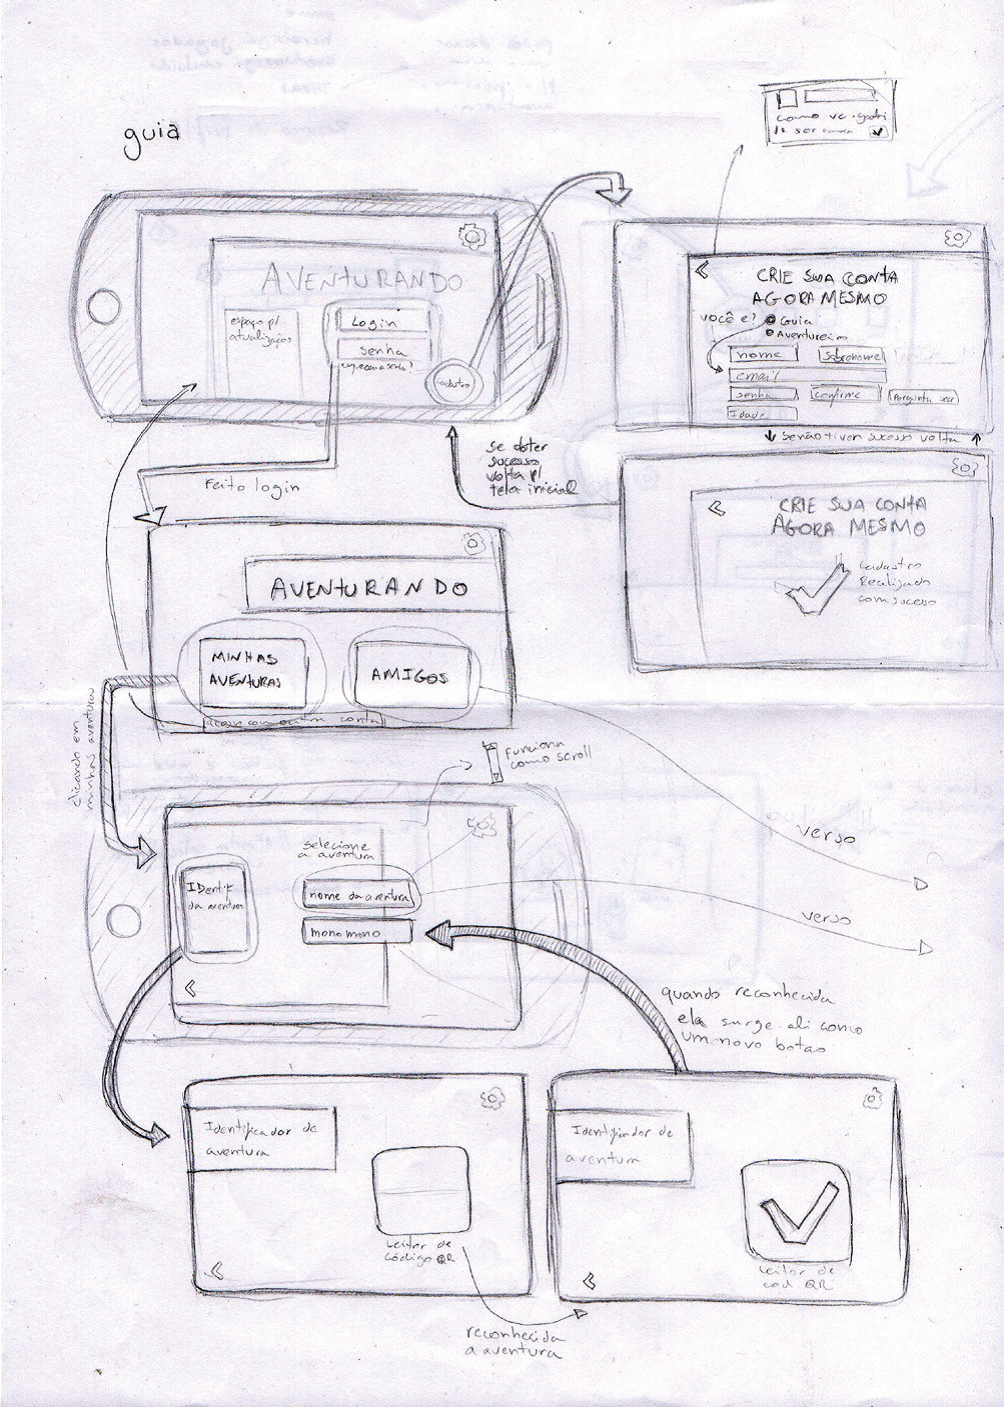 guia
como vc. gostari
de ser
AVENTURANDO
espaço p/
atualizaçoes
Login
senha
esqueceu a senha?
cadastro
CRIE SUA CONTA
AGORA MESMO
você e?
Guia
Aventureiro
nome
sobronome
email
senha
confirme
Pergunta secr
Idade
se não tiver sucesso volta
se obter
sucesso
volta p/
tela inicial
Feito login
CRIE SUA CONTA
AGORA MESMO
cadastro
Realizado
com suceso
AVENTURANDO
MINHAS
AVENTURAS
AMIGOS
com outra conta
clicando em
minhas aventuras
Funciona
como scroll
selecione
a aventura
IDentif
da aventura
nome da aventura
mono mono
verso
verso
quando reconhecida
ela surge ali como
um novo botao
Identificador de
aventura
Leitor de
código QR
Identificador de
aventura
Leitor de
cod QR
reconhecida
a aventura